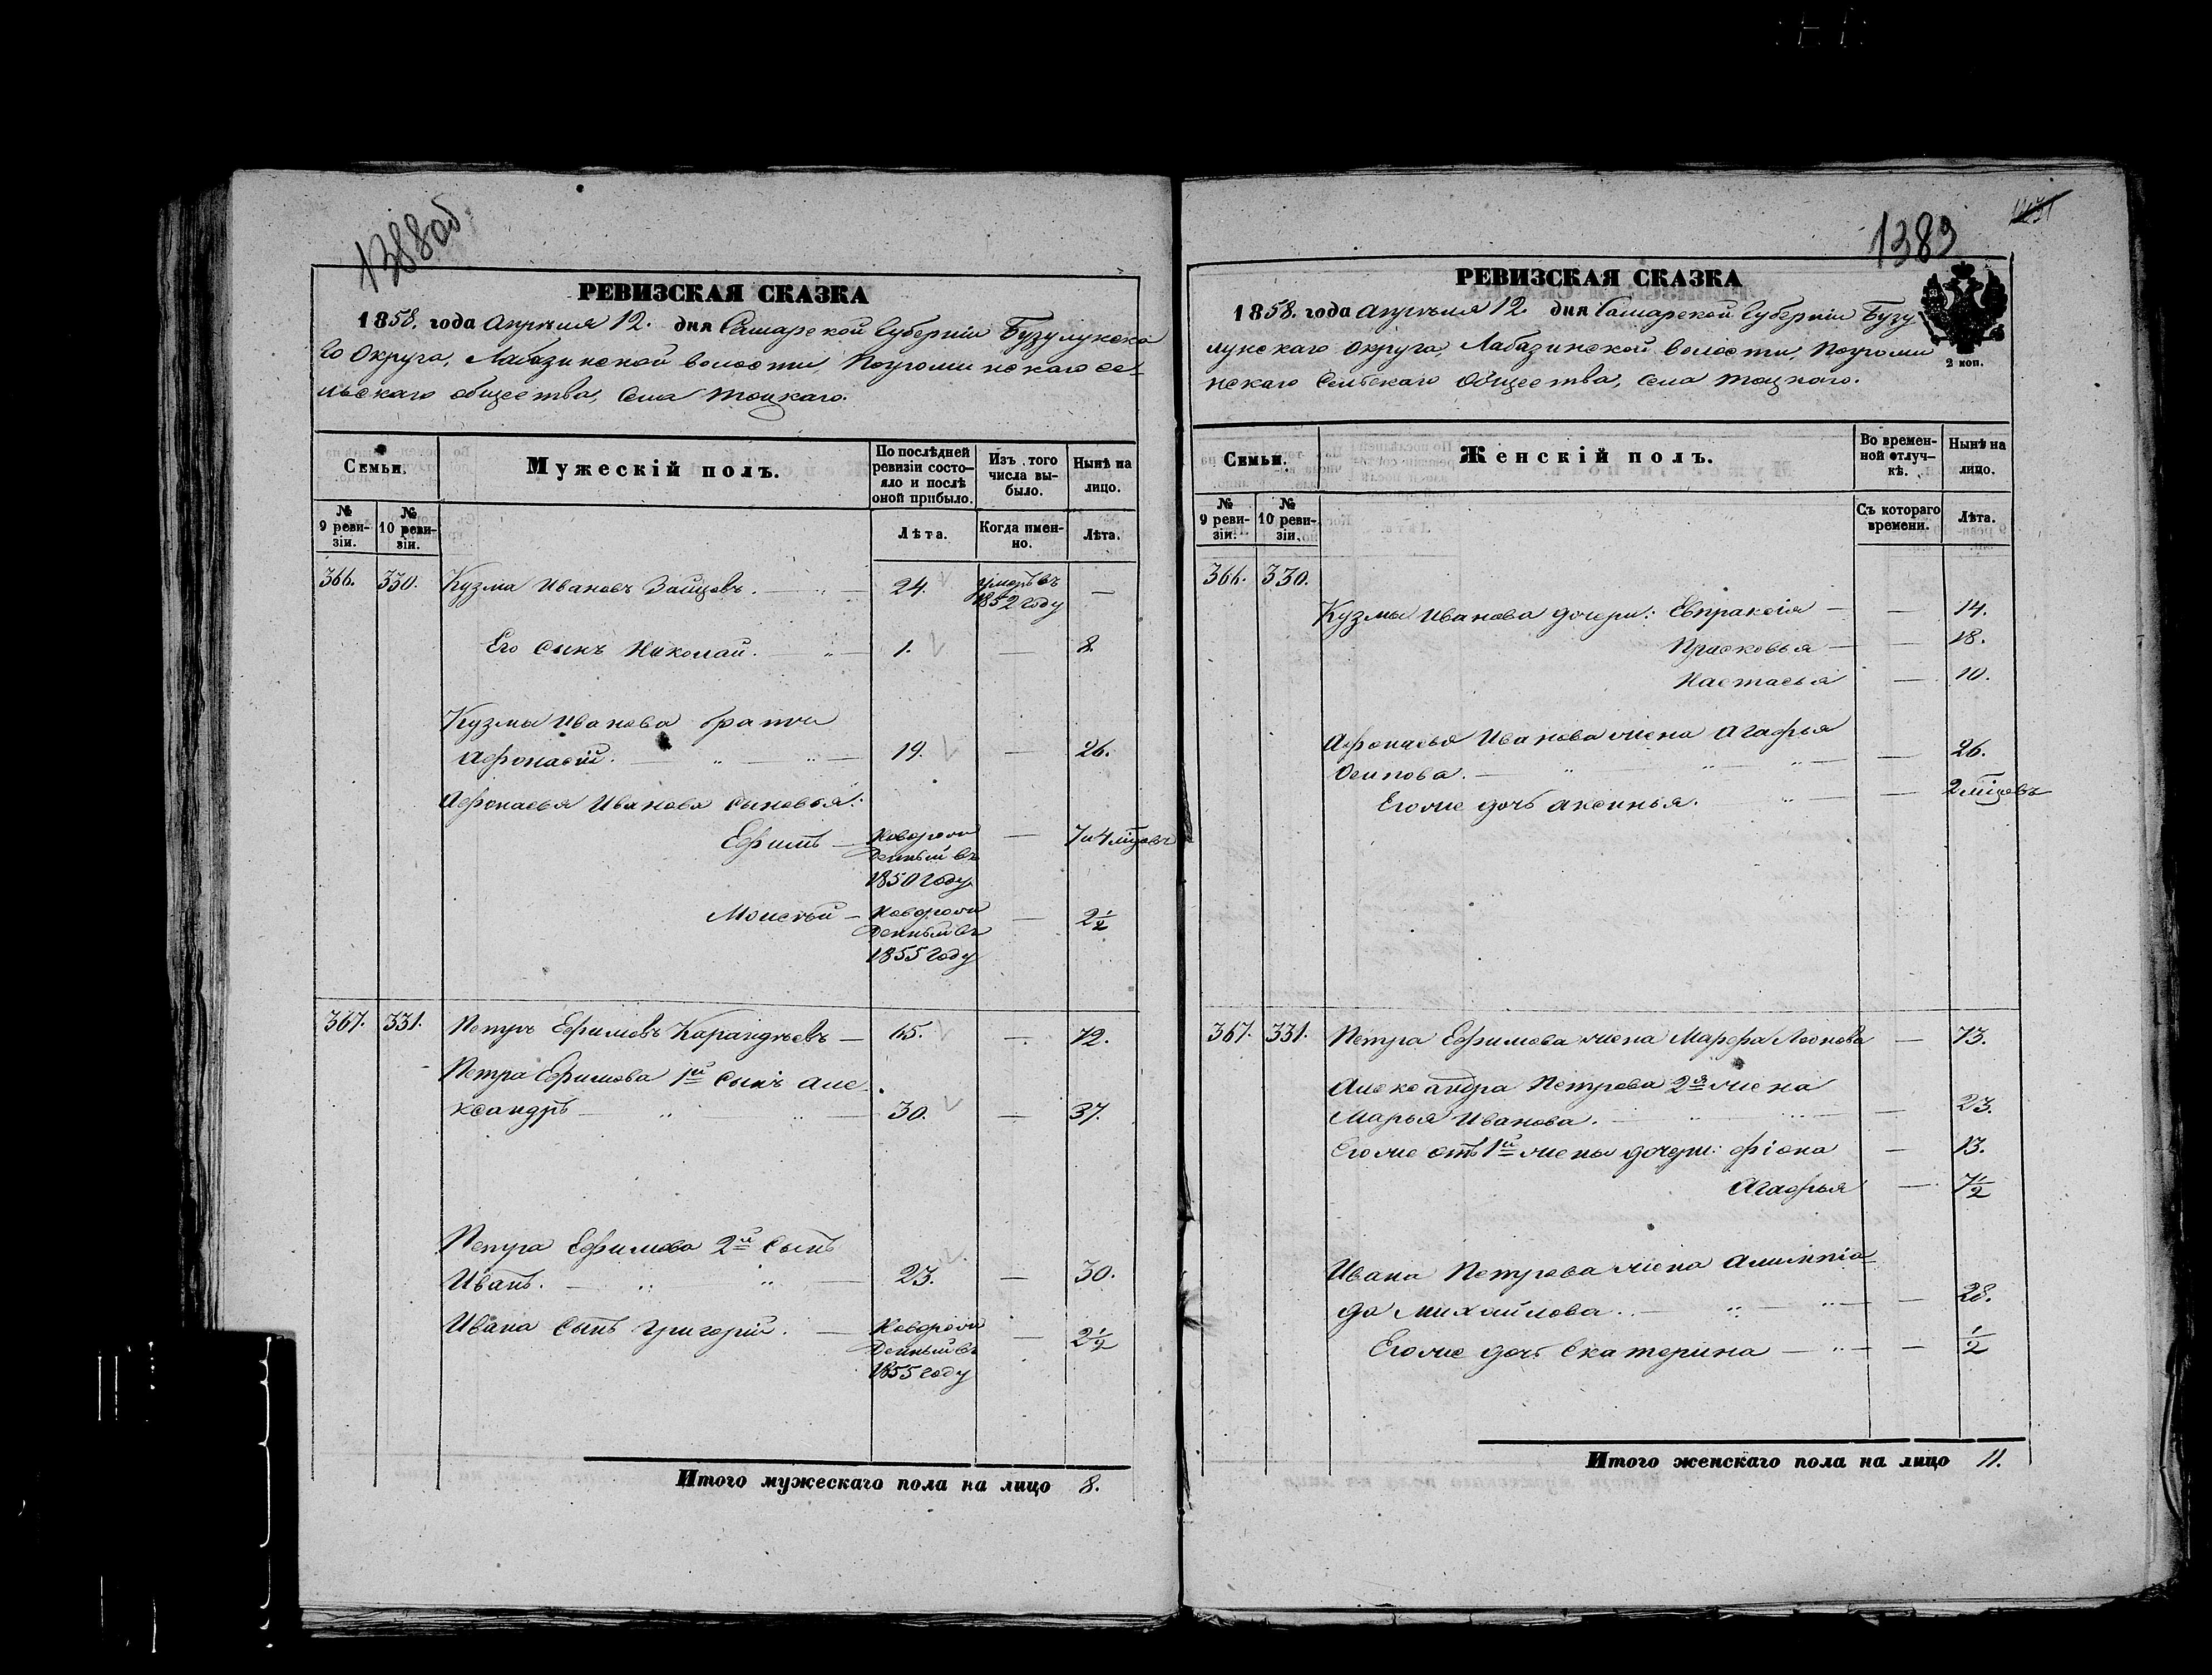 1388об
РЕВИЗСКАЯ СКАЗКА
1858. года Апрѣля 12. дня Самарской Губерніи Бузулукска
го Округа, Лабазинской волости, Погроминскаго се-
льскаго общества, Села Тоцкаго.
Семьи.
Мужескій полъ.
По послѣдней ревизіи состо-
яло и послѣ оной прибыло.
Изъ того числа вы-
было.
Нынѣ на лицо.
№ 9 реви-
зіи.
№ 10 реви-
зіи.
Лѣта.
Когда имен-
но.
Лѣта.
366. 330. Кузма Ивановъ Зайцовъ. — " — 24. умеръ въ 1852 году —
Его сынъ Николай. — " — 1. — 8.
Кузмы Иванова братъ
Афонасій. — " — " — 19. — 26.
Афонасья Иванова сыновья:
Ефимъ — Новорож
денный въ
1850 году — 7 и 4 мѣсцовъ
Моисѣй — Новорож
денный въ
1855 году — 2½
367. 331. Петръ Ефимовъ Карандѣевъ — 65. — 72.
Петра Ефимова 1й сынъ Але
ксандръ — " — " — 30. — 37.
Петра Ефимова 2й сынъ
Иванъ. — " — " — 23. — 30.
Ивана сынъ Григорій. — Новорож
денный въ
1855 году — 2½
Итого мужескаго пола на лицо 8.
1389
РЕВИЗСКАЯ СКАЗКА
1858. года Апрѣля 12. дня Самарской Губерніи Бузу
лукскаго Округа, Лабазинской волости, Погроми
нскаго Сельскаго Общества, Села Тоцкаго.
2 коп.
Семьи.
Женскій полъ.
Во времен-
ной отлуч-
кѣ.
Нынѣ на лицо.
№ 9 реви-
зіи.
№ 10 реви-
зіи.
Съ котораго времени.
Лѣта.
366. 330.
Кузмы Иванова дочери: Евпраксія — — 14.
Прасковья — — 18.
Настасья — 10.
Афонасья Иванова жена Агафья
Осипова. — " — " — " — 26.
Его же дочь Аксинья. " — — 2 мѣсцовъ
367. 331. Петра Ефимова жена Марфа Леонова — 73.
Александра Петрова 2я жена
Марья Иванова. — " — 23.
Его же отъ 1й жены дочери: Фіона — 13.
Агафья — 7½
Ивана Петрова жена Алимпіа-
да Михайлова. — " — " — — 28.
Его же дочь Екатерина — " — — ½
Итого женскаго пола на лицо 11.